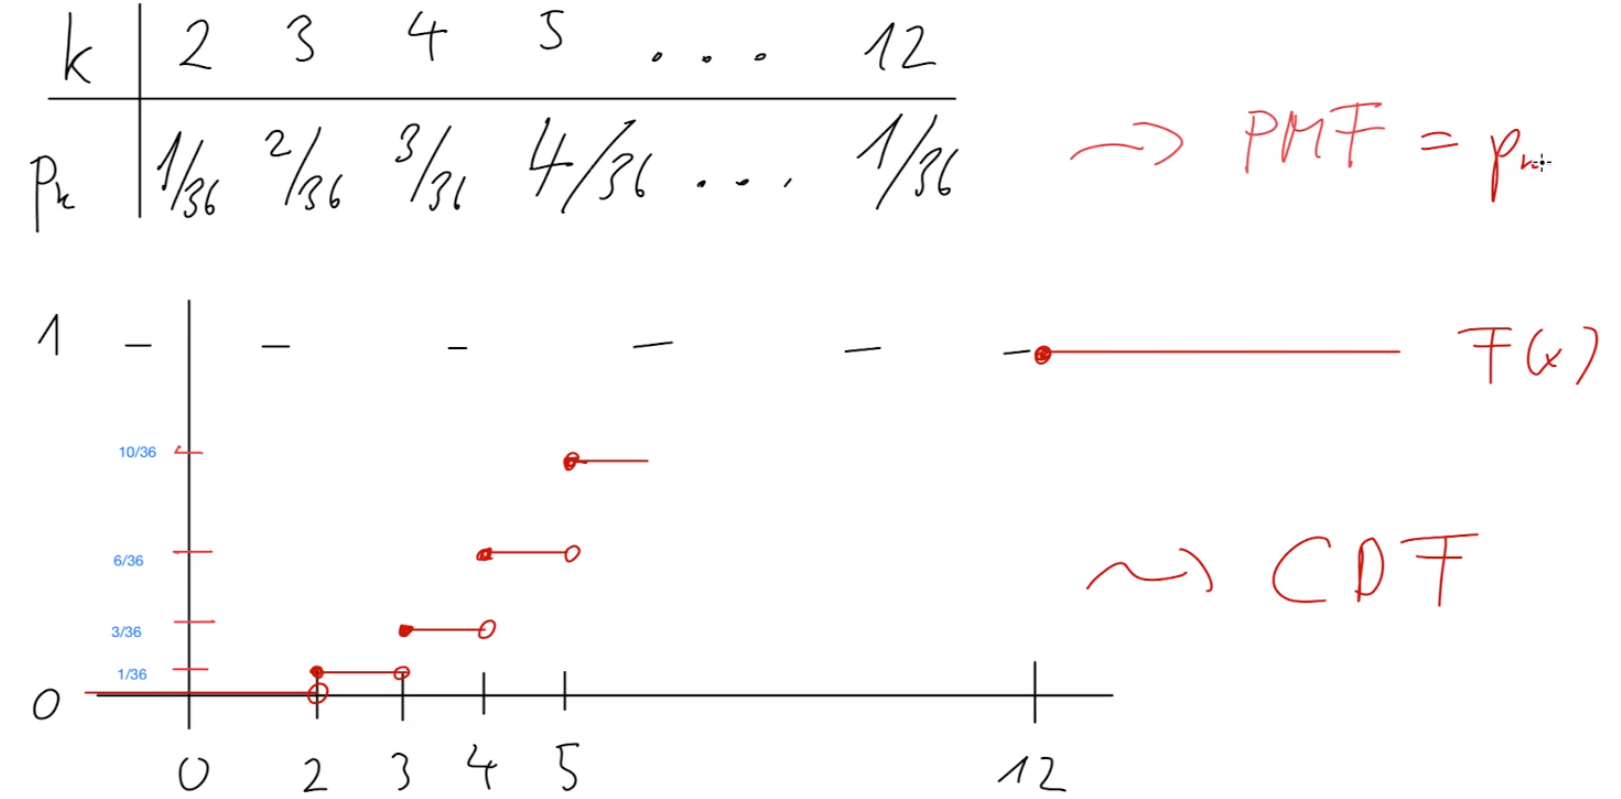 k 2 3 4 5 . . . 12
pk 1/36 2/36 3/36 4/36 . . . 1/36 ⇝ PMF = pk
1 F(x)
10/36
6/36 ⇝ CDF
3/36
1/36
0
0 2 3 4 5 12